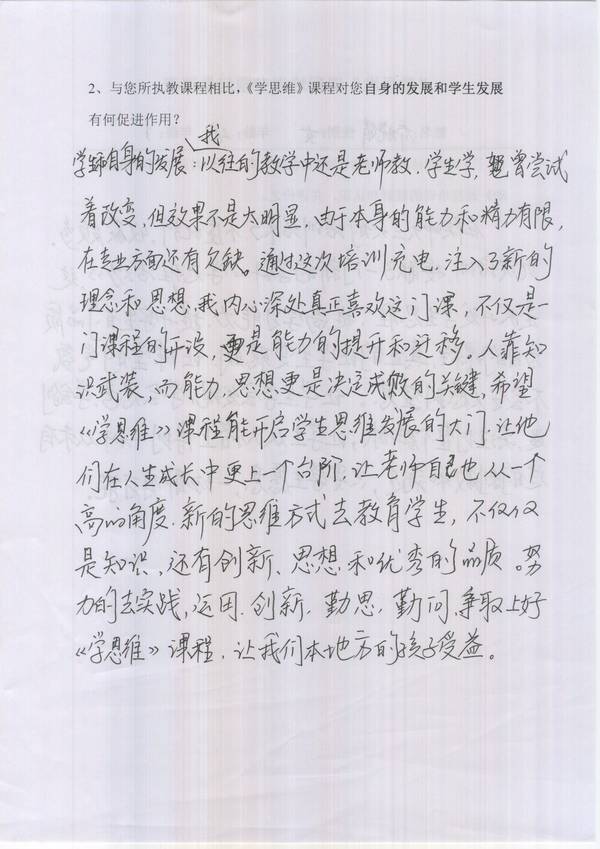 2、与您所执教课程相比，《学思维》课程对您自身的发展和学生发展
有何促进作用？
我
学师自身的发展：以往的教学中还是老师教．学生学，曾尝试
着改变，但效果不是大明显，由于本身的能力和精力有限，
在专业方面还有欠缺。通过这次培训充电，注入了新的
理念和思想，我内心深处真正喜欢这门课，不仅是一
门课程的开设，更是能力的提升和迁移。人靠知
识武装，而能力、思想更是决定成败的关键，希望
《学思维》课程能开启学生思维发展的大门．让他
们在人生成长中更上一个台阶，让老师自己也从一个
高的角度．新的思维方式去教育学生，不仅仅
是知识、还有创新、思想、和优秀的品质。努
力的去实践，运用．创新．勤思，勤问，争取上好
《学思维》课程．让我们本地方的孩子受益。